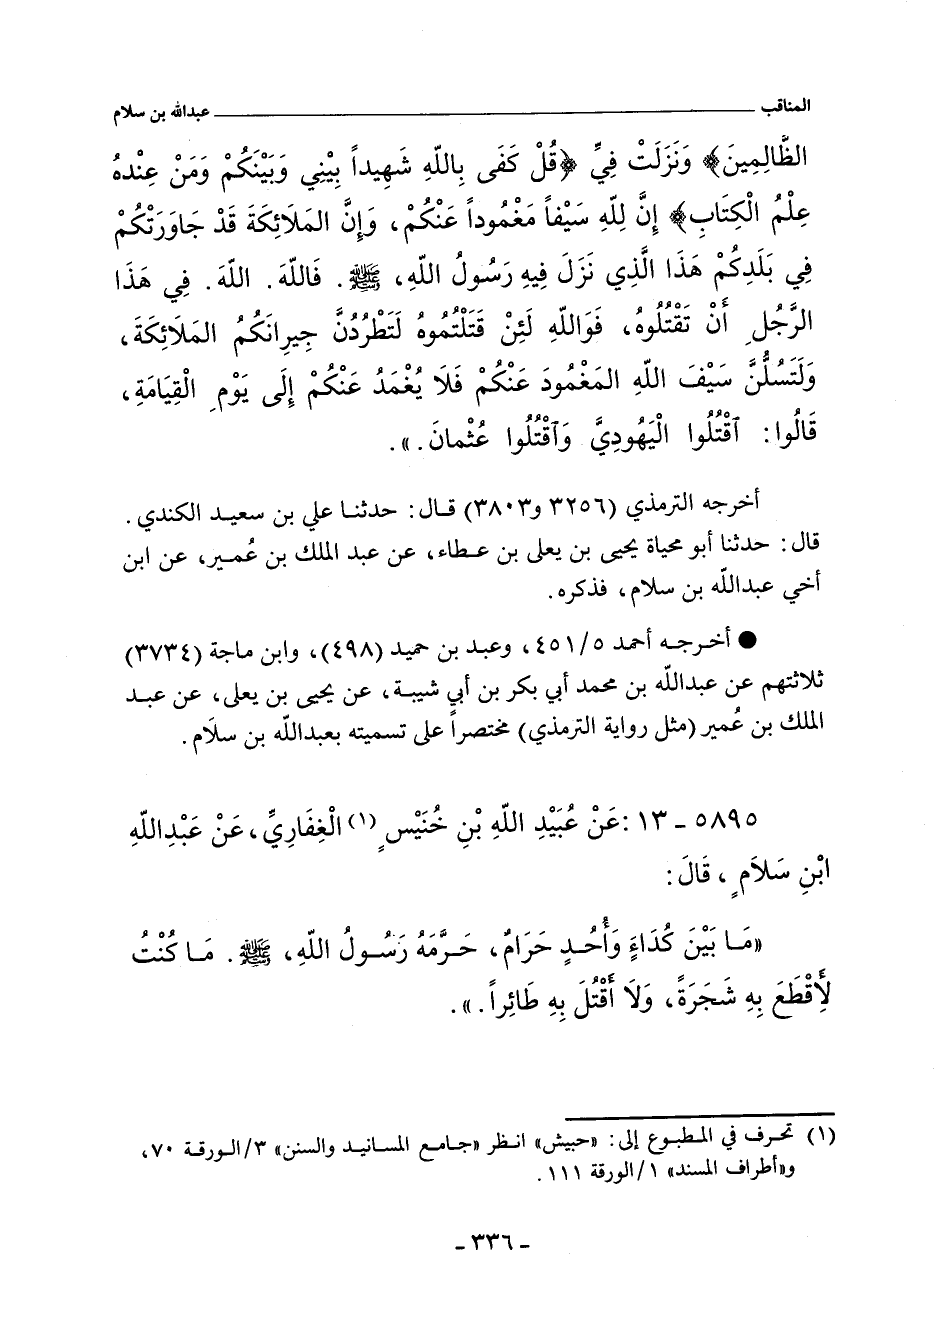 المناقب ــــــــــــــــــــ عبدالله بن سلام
الظَّالِمِينَ﴾ وَنَزَلَتْ فِيَّ ﴿قُلْ كَفَى بِاللّهِ شَهِيداً بَيْنِي وَبَيْنَكُمْ وَمَنْ عِنْدهُ
عِلْمُ الْكِتَابِ﴾ إِنَّ لِلّهِ سَيْفاً مَغْمُوداً عَنْكُمْ، وَإِنَّ المَلَائِكَةَ قَدْ جَاوَرَتْكُمْ
فِي بَلَدِكُمْ هَذَا الَّذِي نَزَلَ فِيهِ رَسُولُ اللّهِ، ﷺ. فَاللّهَ. اللّهَ. فِي هَذَا
الرَّجُلِ أَنْ تَقْتُلُوهُ، فَوَاللّهِ لَئِنْ قَتَلْتُمُوهُ لَتَطْرُدُنَّ جِيرَانَكُمُ المَلَائِكَةَ،
وَلَتَسُلُّنَّ سَيْفَ اللّهِ المَغْمُودَ عَنْكُمْ فَلَا يُغْمَدُ عَنْكُمْ إِلَى يَوْمِ الْقِيَامَةِ،
قَالُوا: ٱقْتُلُوا الْيَهُودِيَّ وَٱقْتُلُوا عُثْمانَ.».
أخرجه الترمذي (٣٢٥٦ و٣٨٠٣) قال: حدثنا علي بن سعيد الكندي.
قال: حدثنا أبو محياة يحيى بن يعلى بن عطاء، عن عبد الملك بن عُمير، عن ابن
أخي عبدالله بن سلام، فذكره.
● أخرجه أحمد ٤٥١/٥، وعبد بن حميد (٤٩٨)، وابن ماجة (٣٧٣٤)
ثلاثتهم عن عبدالله بن محمد أبي بكر بن أبي شيبة، عن يحيى بن يعلى، عن عبد
الملك بن عُمير (مثل رواية الترمذي) مختصراً على تسميته بعبدالله بن سلام.
٥٨٩٥ ـ ١٣: عَنْ عُبَيْدِ اللّهِ بْنِ خُنَيْسٍ(١) الْغِفَارِيِّ، عَنْ عَبْدِاللّهِ
ابْنِ سَلاَمٍ، قَالَ:
«مَا بَيْنَ كُدَاءٍ وَأُحُدٍ حَرَامٌ، حَرَّمَهُ رَسُولُ اللّهِ، ﷺ. مَا كُنْتُ
لِأَقْطَعَ بِهِ شَجَرَةً، وَلَا أَقْتُلَ بِهِ طَائِراً.».
(١) تحرف في المطبوع إلى: «حبيش» انظر «جامع المسانيد والسنن» ٣/الورقة ٧٠،
و«أطراف المسند» ١/الورقة ١١١.
- ٣٣٦ -